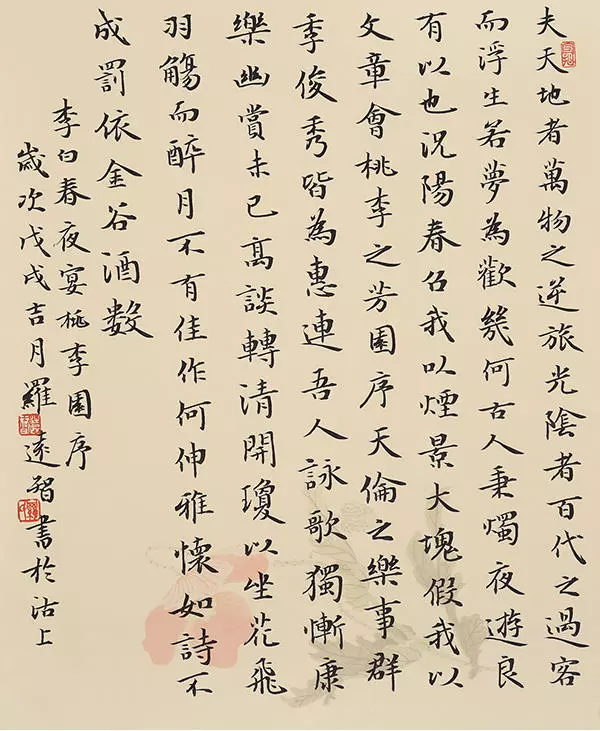 夫天地者萬物之逆旅光陰者百代之過客
而浮生若夢為歡幾何古人秉燭夜遊良
有以也況陽春召我以煙景大塊假我以
文章會桃李之芳園序天倫之樂事群
季俊秀皆為惠連吾人詠歌獨慚康
樂幽賞未已高談轉清開瓊以坐花飛
羽觴而醉月不有佳作何伸雅懷如詩不
成罰依金谷酒數
李白春夜宴桃李園序
歲次戊戌吉月羅遠智書於沽上